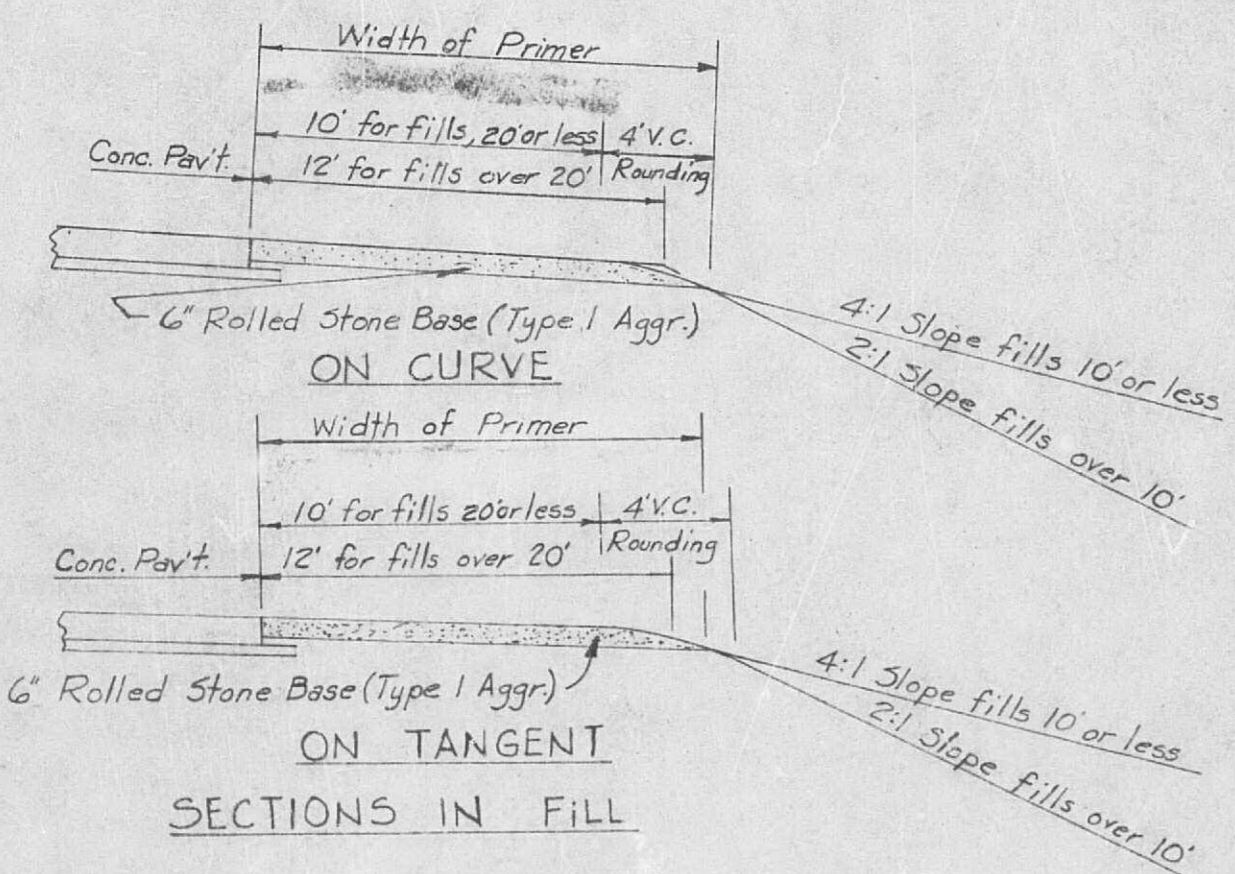 Width of Primer
10' for fills, 20' or less
4' V.C.
Conc. Pav't.
12' for fills over 20'
Rounding
6" Rolled Stone Base (Type 1 Aggr.)
4:1 Slope fills 10' or less
2:1 Slope fills over 10'
ON CURVE
Width of Primer
10' for fills 20' or less
4' V.C.
Conc. Pav't.
12' for fills over 20'
Rounding
6" Rolled Stone Base (Type 1 Aggr.)
4:1 Slope fills 10' or less
2:1 Slope fills over 10'
ON TANGENT
SECTIONS IN FiLL